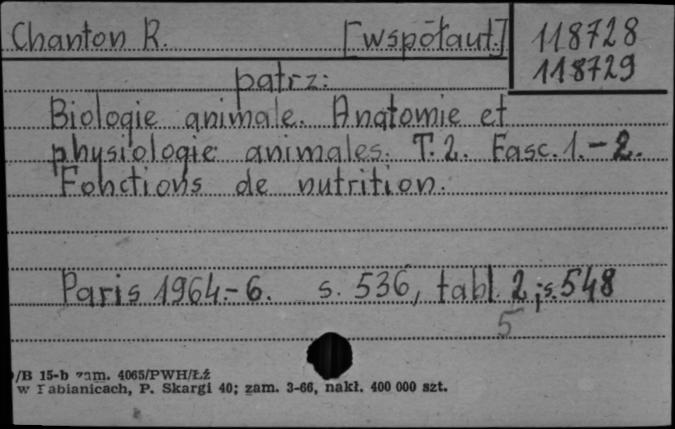 Chanton R. [współaut.] 118728
118729
patrz:
Biologie animale. Anatomie et
physiologie animales. T. 2. Fasc. 1.-2.
Fonctions de nutrition.
Paris 1964.-6. s. 536, tabl. 2; s. 548
5
/B 15-b zam. 4065/PWH/Łź
w Pabianicach, P. Skargi 40; zam. 3-66, nakł. 400 000 szt.